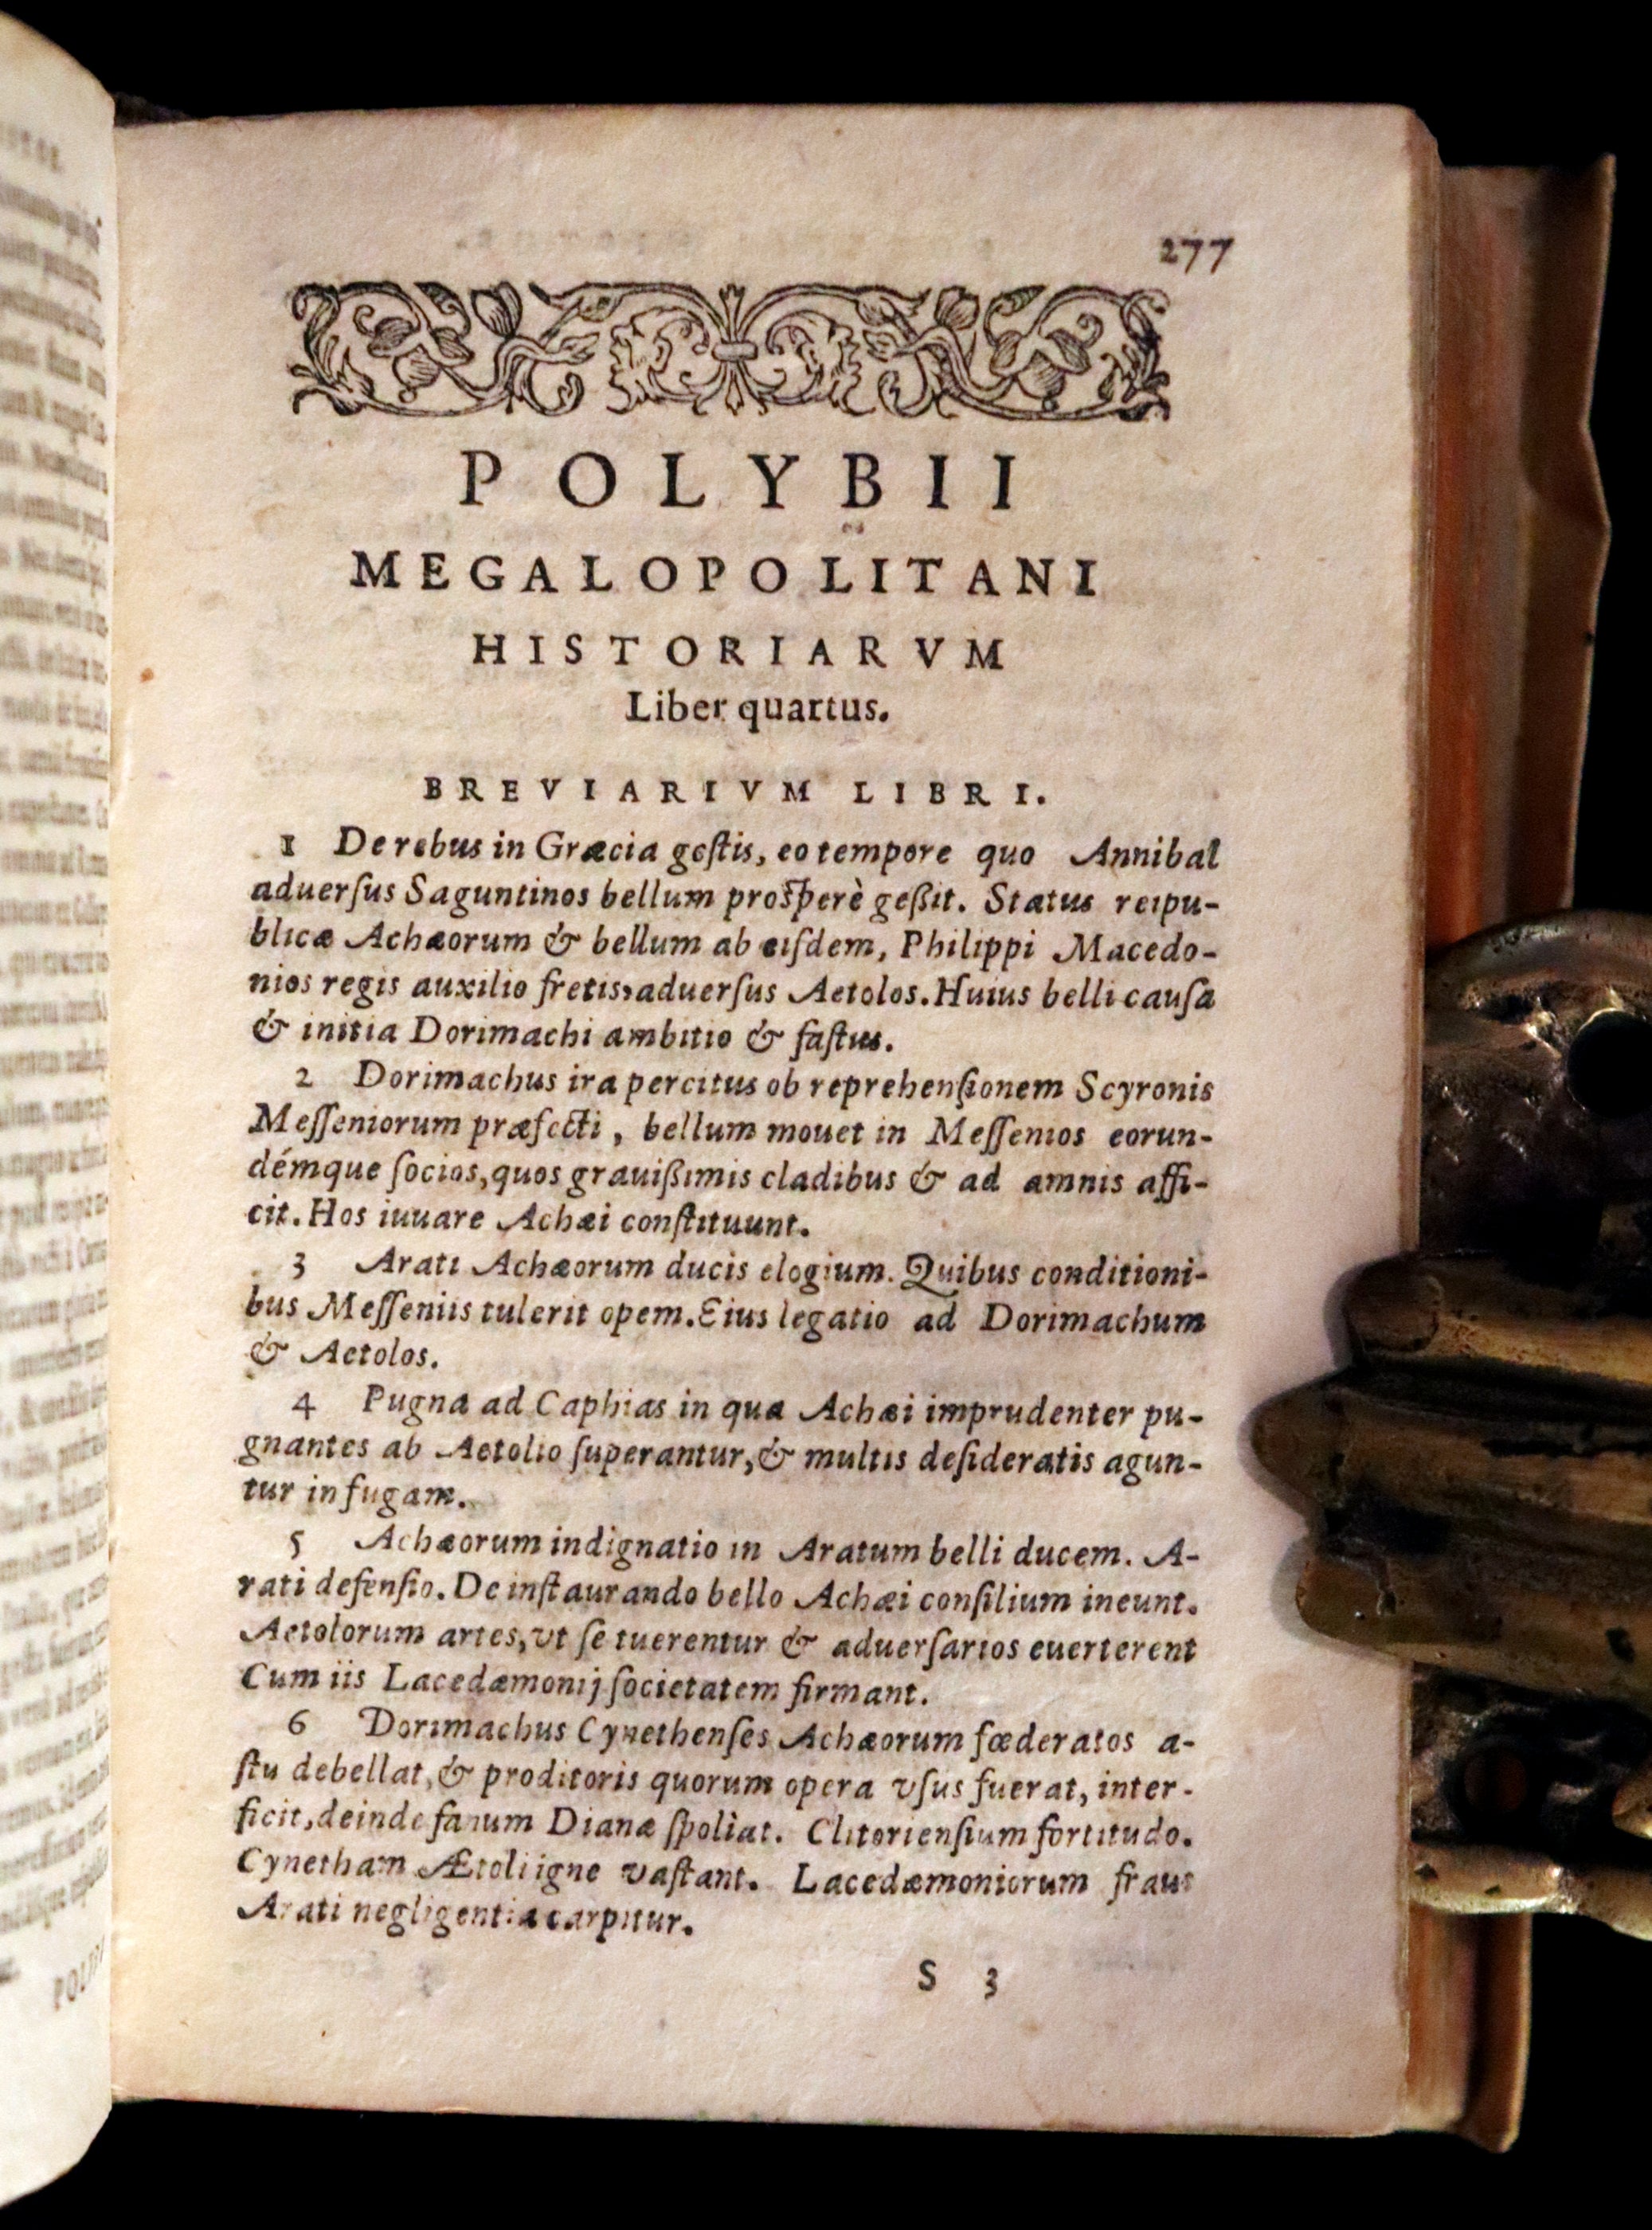 277
POLYBII
MEGALOPOLITANI
HISTORIARVM
Liber quartus.
BREVIARIVM LIBRI.
1 De rebus in Græcia geſtis, eo tempore quo Annibal
aduerſus Saguntinos bellum proſperè geßit. Status reipu-
blicæ Achæorum & bellum ab eiſdem, Philippi Macedo-
nios regis auxilio fretis, aduerſus Aetolos. Huius belli cauſa
& initia Dorimachi ambitio & faſtus.
2 Dorimachus ira percitus ob reprehenſionem Scyronis
Meſſeniorum præfecti, bellum mouet in Meſſenios eorun-
démque ſocios, quos grauißimis cladibus & ad amnis affi-
cit. Hos iuuare Achæi conſtituunt.
3 Arati Achæorum ducis elogium. Quibus conditioni-
bus Meſſeniis tulerit opem. Eius legatio ad Dorimachum
& Aetolos.
4 Pugna ad Caphias in qua Achæi imprudenter pu-
gnantes ab Aetolio ſuperantur, & multis deſideratis agun-
tur in fugam.
5 Achæorum indignatio in Aratum belli ducem. A-
rati defenſio. De inſtaurando bello Achæi conſilium ineunt.
Aetolorum artes, vt ſe tuerentur & aduerſarios euerterent
Cum iis Lacedæmonij ſocietatem firmant.
6 Dorimachus Cynethenſes Achæorum fœderatos a-
ſtu debellat, & proditoris quorum opera vſus fuerat, inter-
ficit, deinde fanum Dianæ ſpoliat. Clitorienſium fortitudo.
Cynetham Ætoli igne vaſtant. Lacedæmoniorum fraus
Arati negligentia carpitur.
S 3